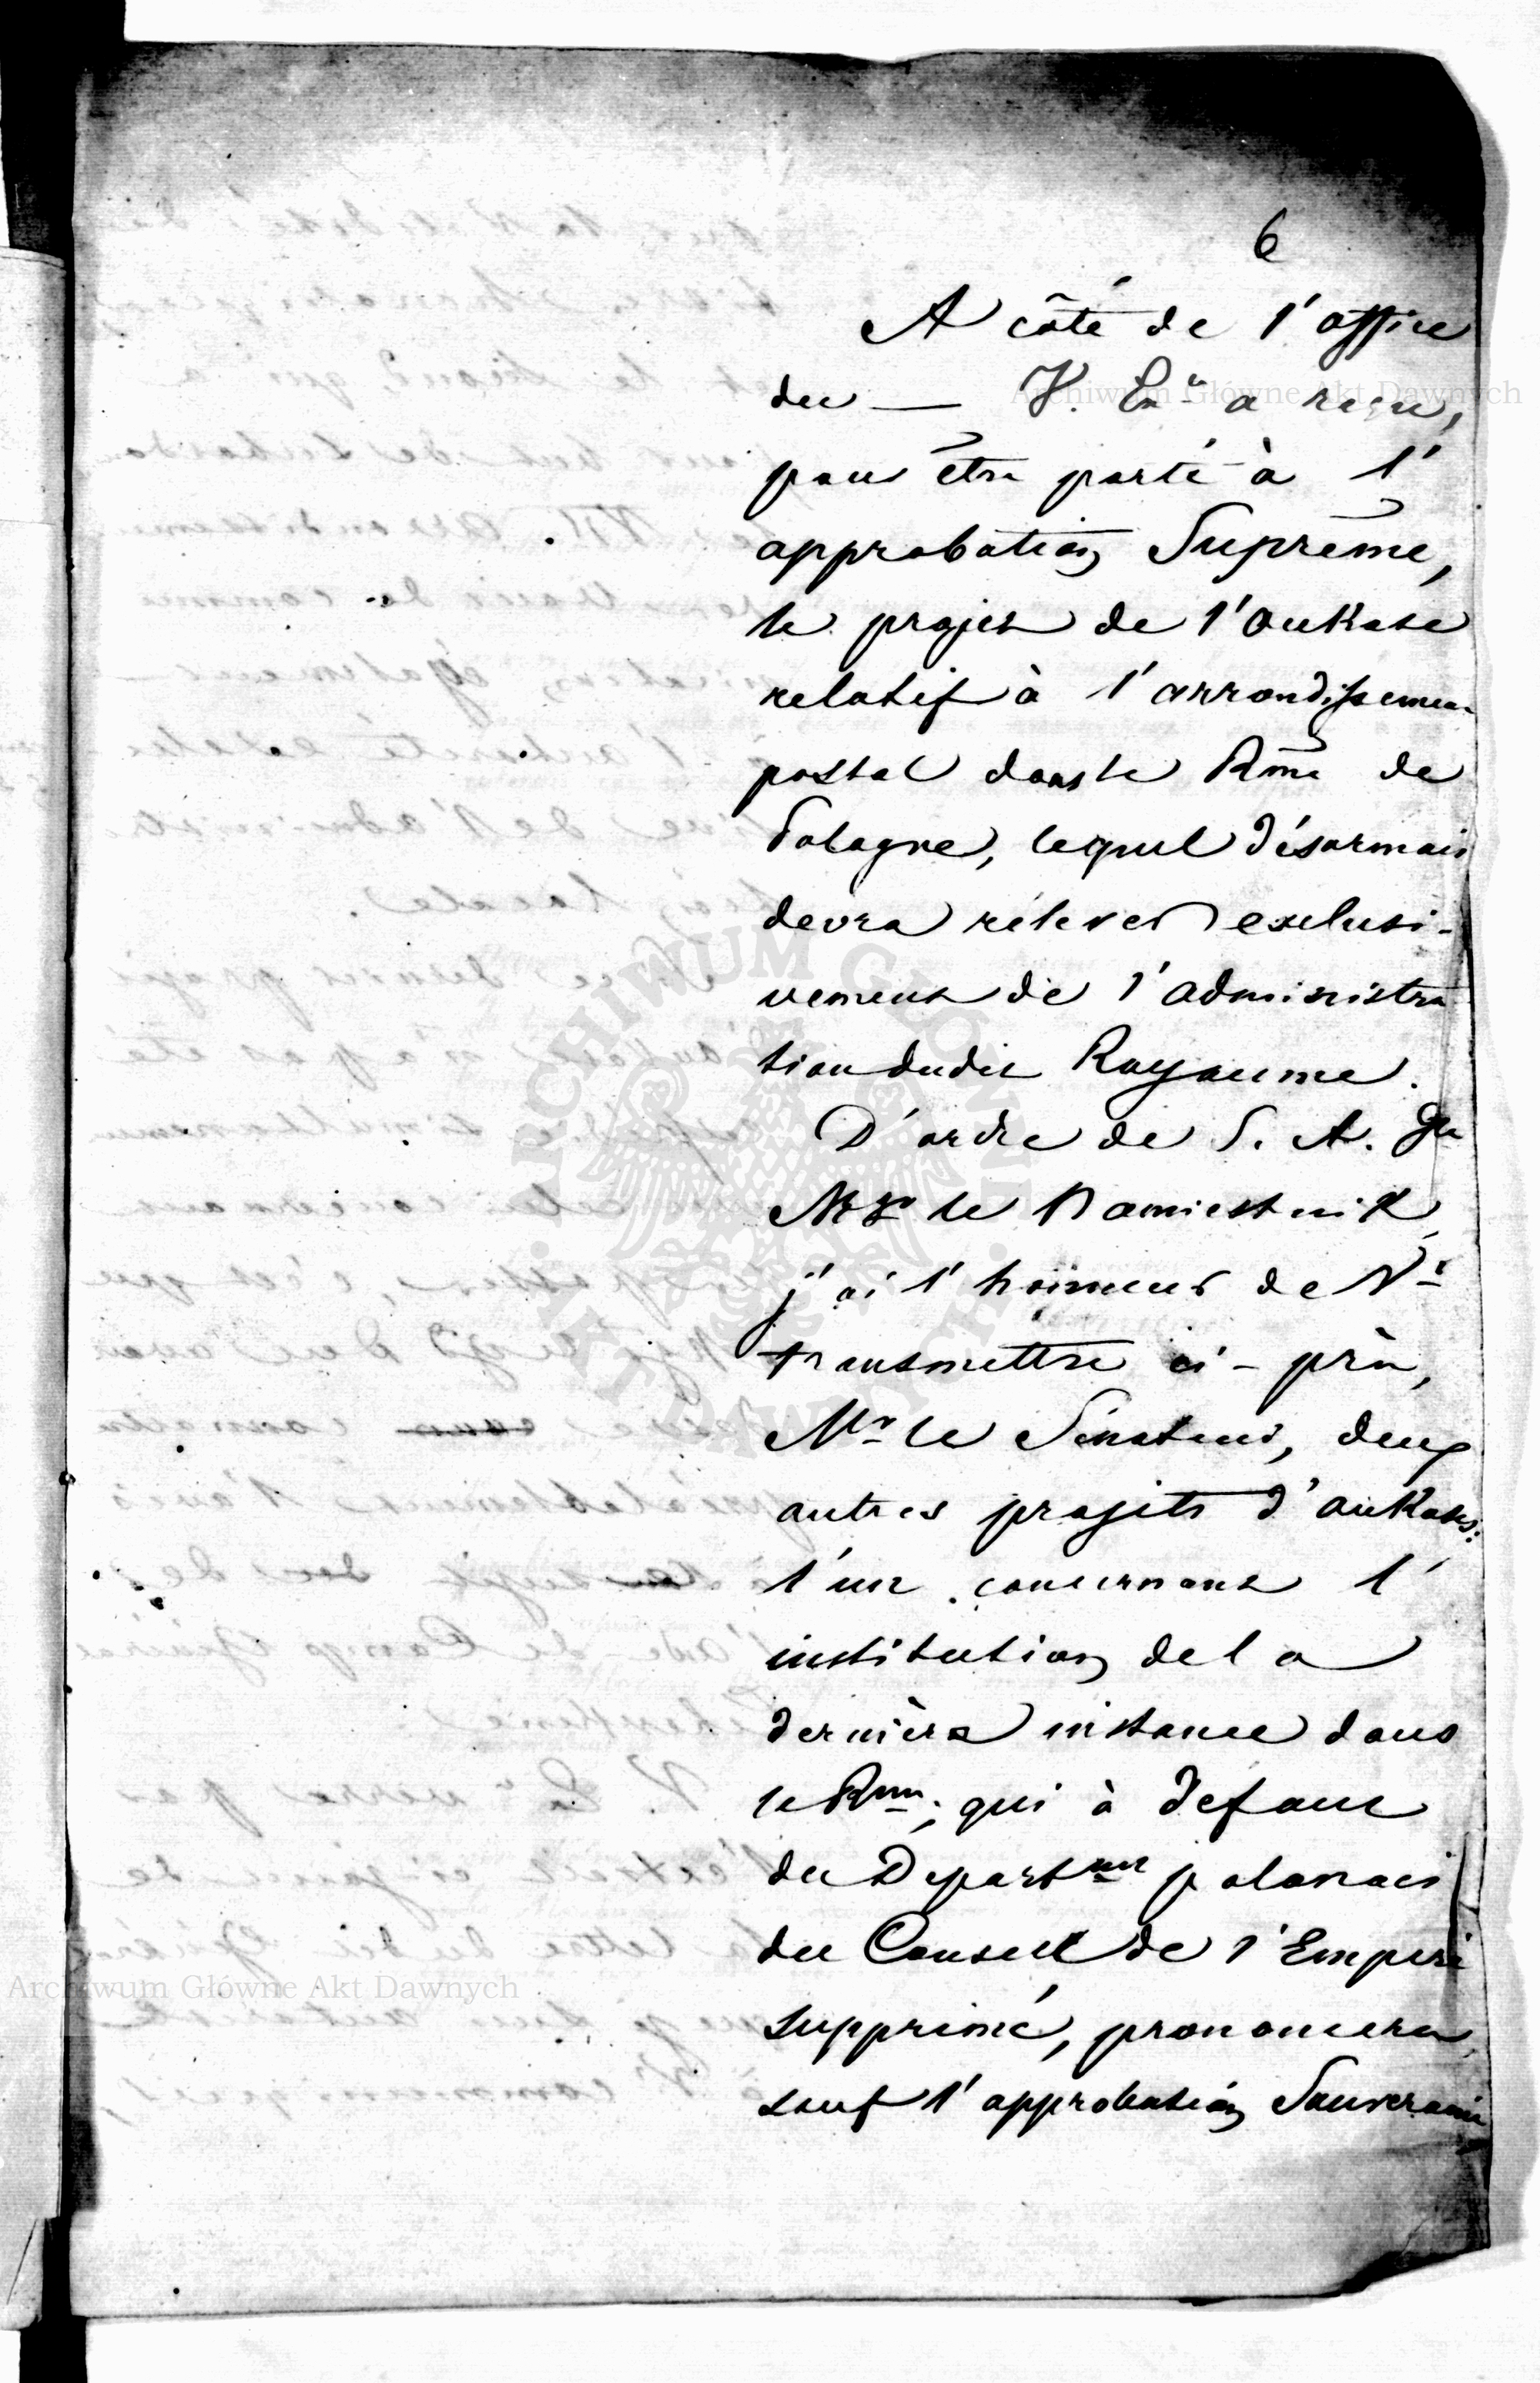 6
A côté de l'office
du — V. Exce a reçu,
pour être porté à l'
approbation Suprême,
le projet de l'oukase
relatif à l'arrondissement
postal dans le Rme de
Pologne, lequel désormais
devra rélever exclusi-
vement de l'administra
tion dudit Royaume.
D'ordre de S. A. Jle
Mgr le Namiestnik,
j'ai l'honneur de Vs
transmettre ci-près,
Mr le Sénateur, deux
autres projets d'oukases:
l'un concernant l'
institution de la
dernière instance dans
le Rme; qui à défaut
du Départment polonais
du Conseil de l'Empire
supprimé, prononcera,
sauf l'approbation Souveraine
Archiwum Główne Akt Dawnych
ARCHIWUM GŁÓWNE
AKT DAWNYCH
Archiwum Główne Akt Dawnych